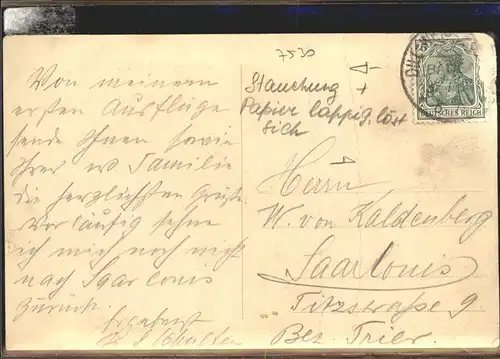 Von meinem
ersten Ausfluge
sende Ihnen sowie
Ihrer w Familie
die herzlichsten Grüße
vorläufig sehne
ich mich noch nicht
nach Saarlouis
zurück.
Ergebenst
Schulten
7530
Stauchung +
Papier lappig, löst
sich
DEUTSCHES REICH
Herrn
W. von Kaldenberg
Saarlouis
Titzstraße 9.
Bez. Trier.